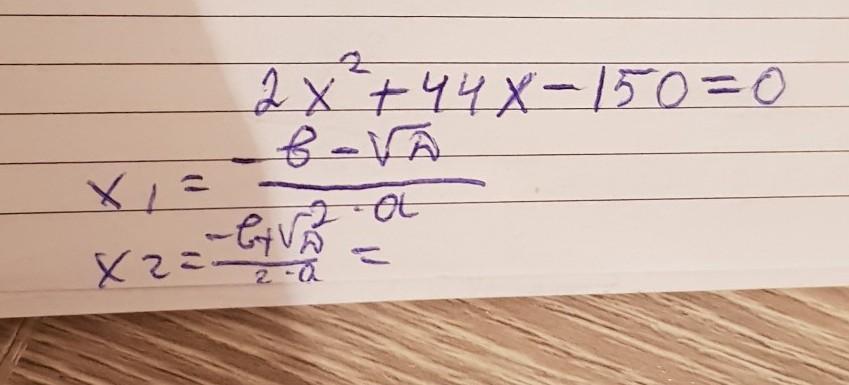 2x² + 44x - 150 = 0
x₁ = (-в - √D) / (2 · a)
x₂ = (-в + √D) / (2 · a) =